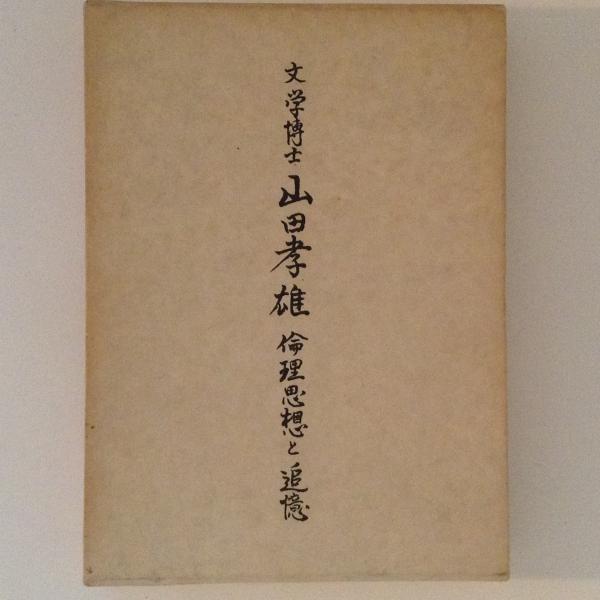 文学博士山田孝雄倫理思想と追憶